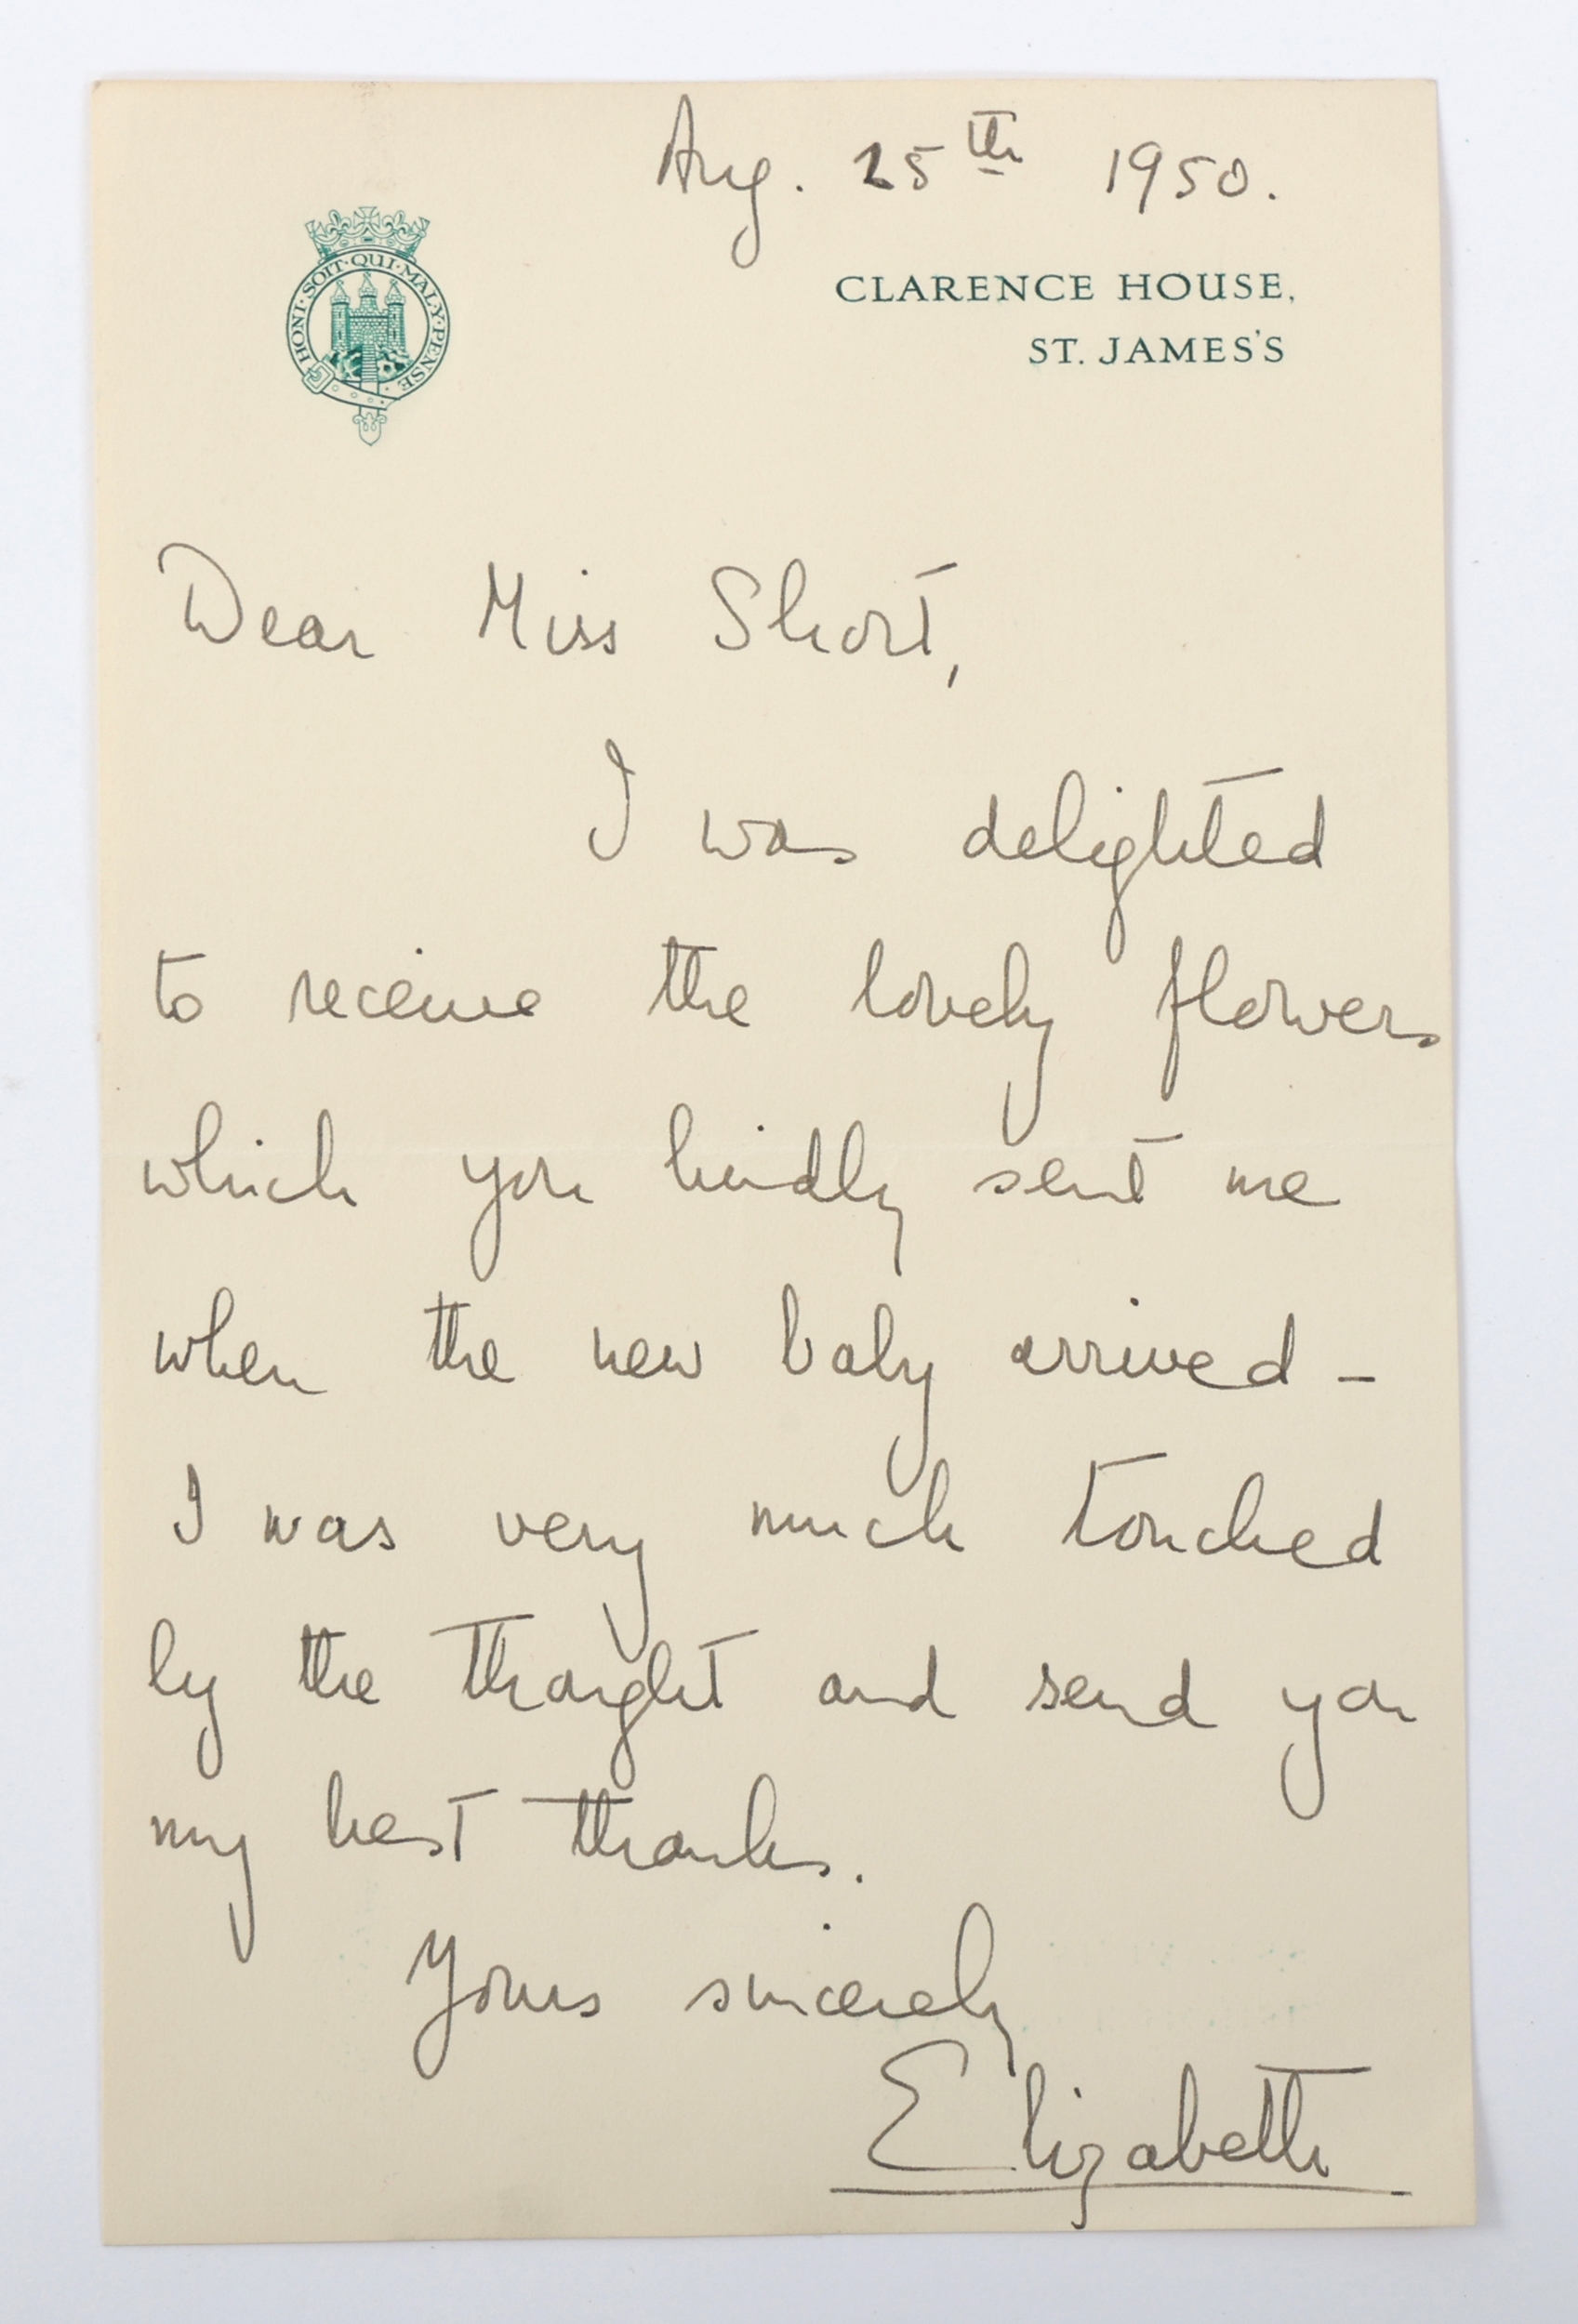 Aug. 25th 1950.
HONI·SOIT·QUI·MAL·Y·PENSE·
CLARENCE HOUSE,
ST. JAMES'S
Dear Miss Short,
I was delighted
to receive the lovely flowers
which you kindly sent me
when the new baby arrived –
I was very much touched
by the thought and send you
my best thanks.
Yours sincerely
Elizabeth